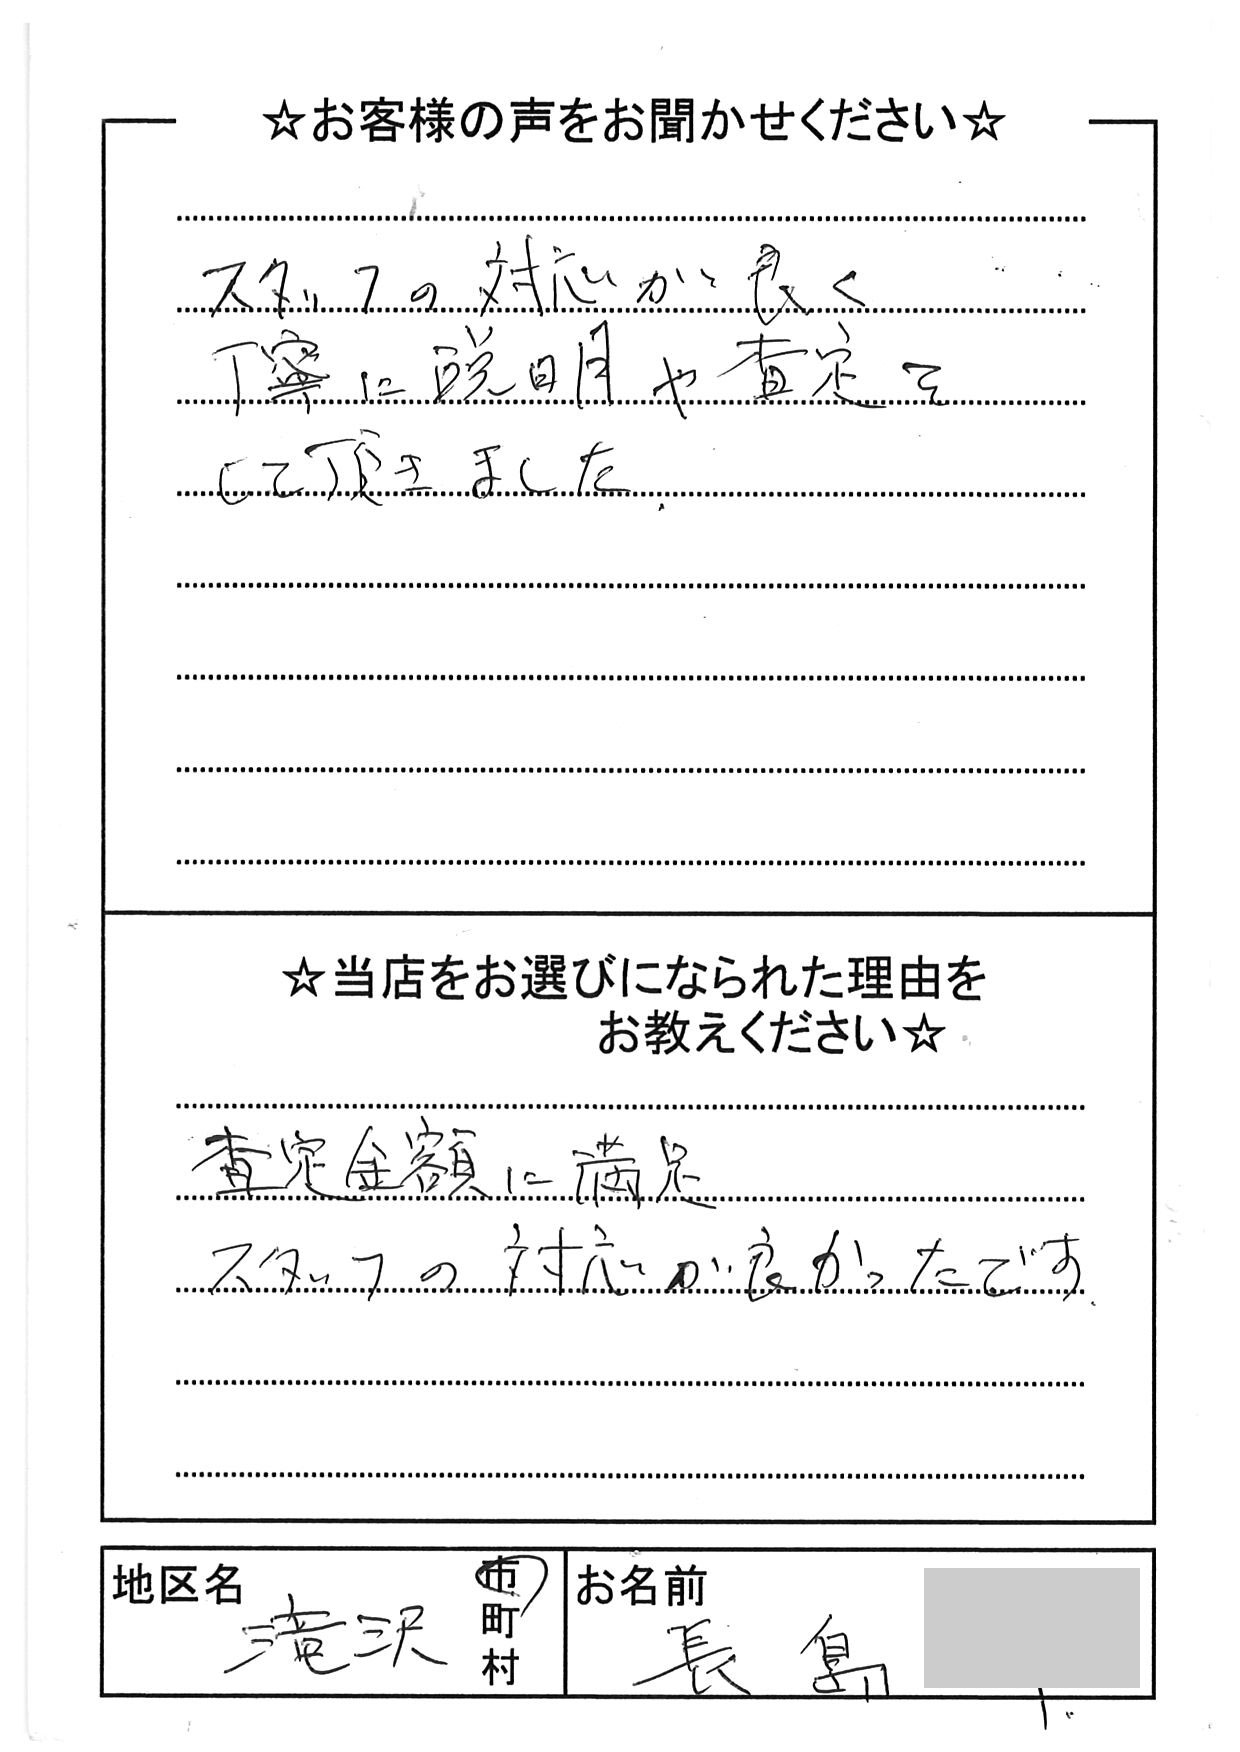 ☆お客様の声をお聞かせください☆
スタッフの対応が良く
丁寧に説明や査定を
して頂きました.
☆当店をお選びになられた理由を
お教えください☆
査定金額に満足
スタッフの対応が良かったです.
地区名
滝沢
市
町
村
お名前
長島